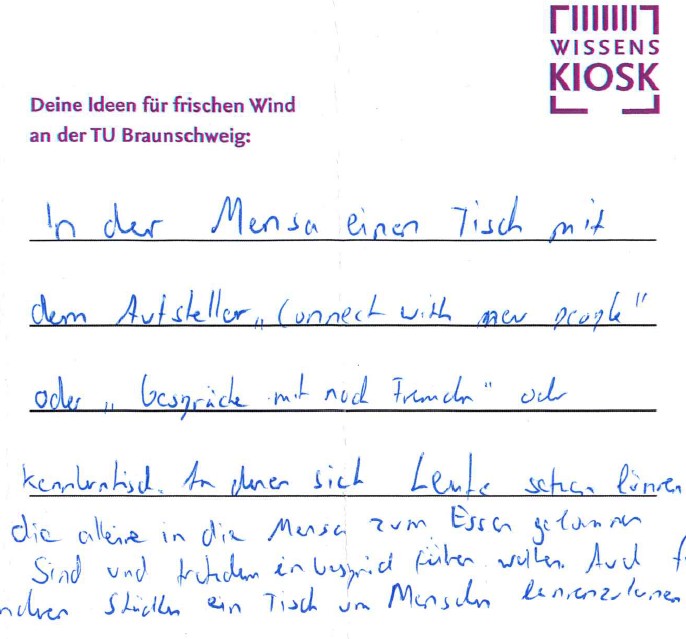 WISSENS
KIOSK
Deine Ideen für frischen Wind
an der TU Braunschweig:
In der Mensa einen Tisch mit
dem Aufsteller „Connect with new people"
oder „Gespräche mit noch Fremden" oder
kennlerntisch. An denen sich Leute setzen können
die alleine in die Mensa zum Essen gekommen
Sind und trotzdem ein Gespräch führen wollen. Auch
ein Tisch um Menschen kennenzulernen